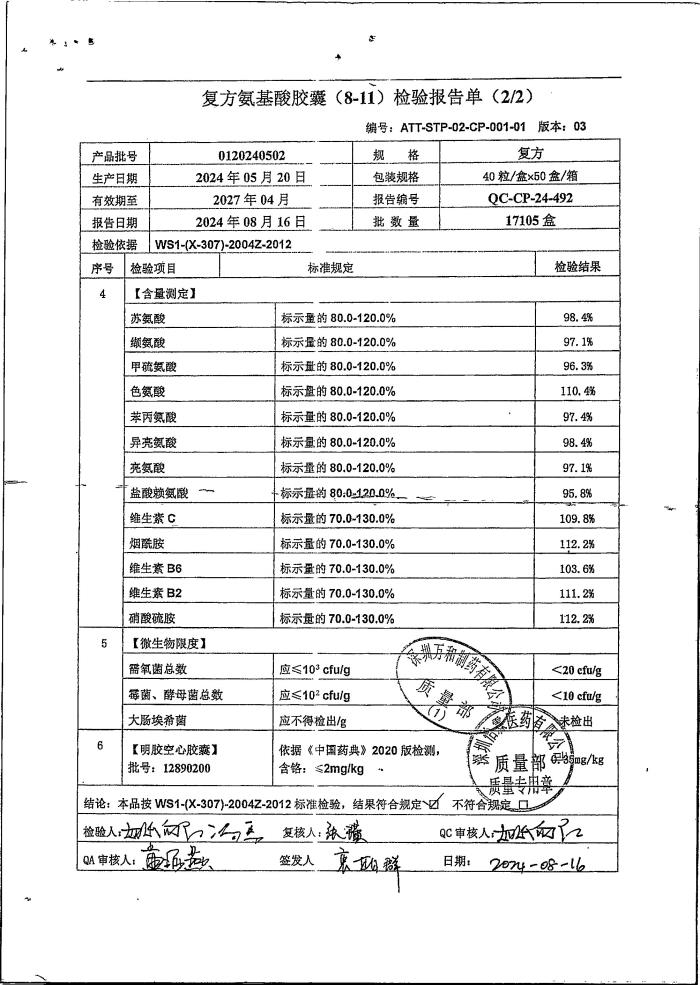 复方氨基酸胶囊（8-11）检验报告单（2/2）
编号：ATT-STP-02-CP-001-01 版本：03
产品批号 0120240502 规 格 复方
生产日期 2024 年 05 月 20 日 包装规格 40 粒/盒×50 盒/箱
有效期至 2027 年 04 月 报告编号 QC-CP-24-492
报告日期 2024 年 08 月 16 日 批 数 量 17105 盒
检验依据 WS1-(X-307)-2004Z-2012
序号 检验项目 标准规定 检验结果
4 【含量测定】
苏氨酸 标示量的 80.0-120.0% 98.4%
缬氨酸 标示量的 80.0-120.0% 97.1%
甲硫氨酸 标示量的 80.0-120.0% 96.3%
色氨酸 标示量的 80.0-120.0% 110.4%
苯丙氨酸 标示量的 80.0-120.0% 97.4%
异亮氨酸 标示量的 80.0-120.0% 98.4%
亮氨酸 标示量的 80.0-120.0% 97.1%
盐酸赖氨酸 标示量的 80.0-120.0% 95.8%
维生素 C 标示量的 70.0-130.0% 109.8%
烟酰胺 标示量的 70.0-130.0% 112.2%
维生素 B6 标示量的 70.0-130.0% 103.6%
维生素 B2 标示量的 70.0-130.0% 111.2%
硝酸硫胺 标示量的 70.0-130.0% 112.2%
5 【微生物限度】
需氧菌总数 应≤10³ cfu/g <20 cfu/g
霉菌、酵母菌总数 应≤10² cfu/g <10 cfu/g
大肠埃希菌 应不得检出/g 未检出
深圳万和制药有限公司
质量部
(1)
6 【明胶空心胶囊】 依据《中国药典》2020 版检测，
批号：12890200 含铬：≤2mg/kg mg/kg
医药有限公司
质量部
质量专用章
结论：本品按 WS1-(X-307)-2004Z-2012 标准检验，结果符合规定☑ 不符合规定□
检验人： 复核人： QC 审核人：
QA 审核人： 签发人 日期： 2024-08-16